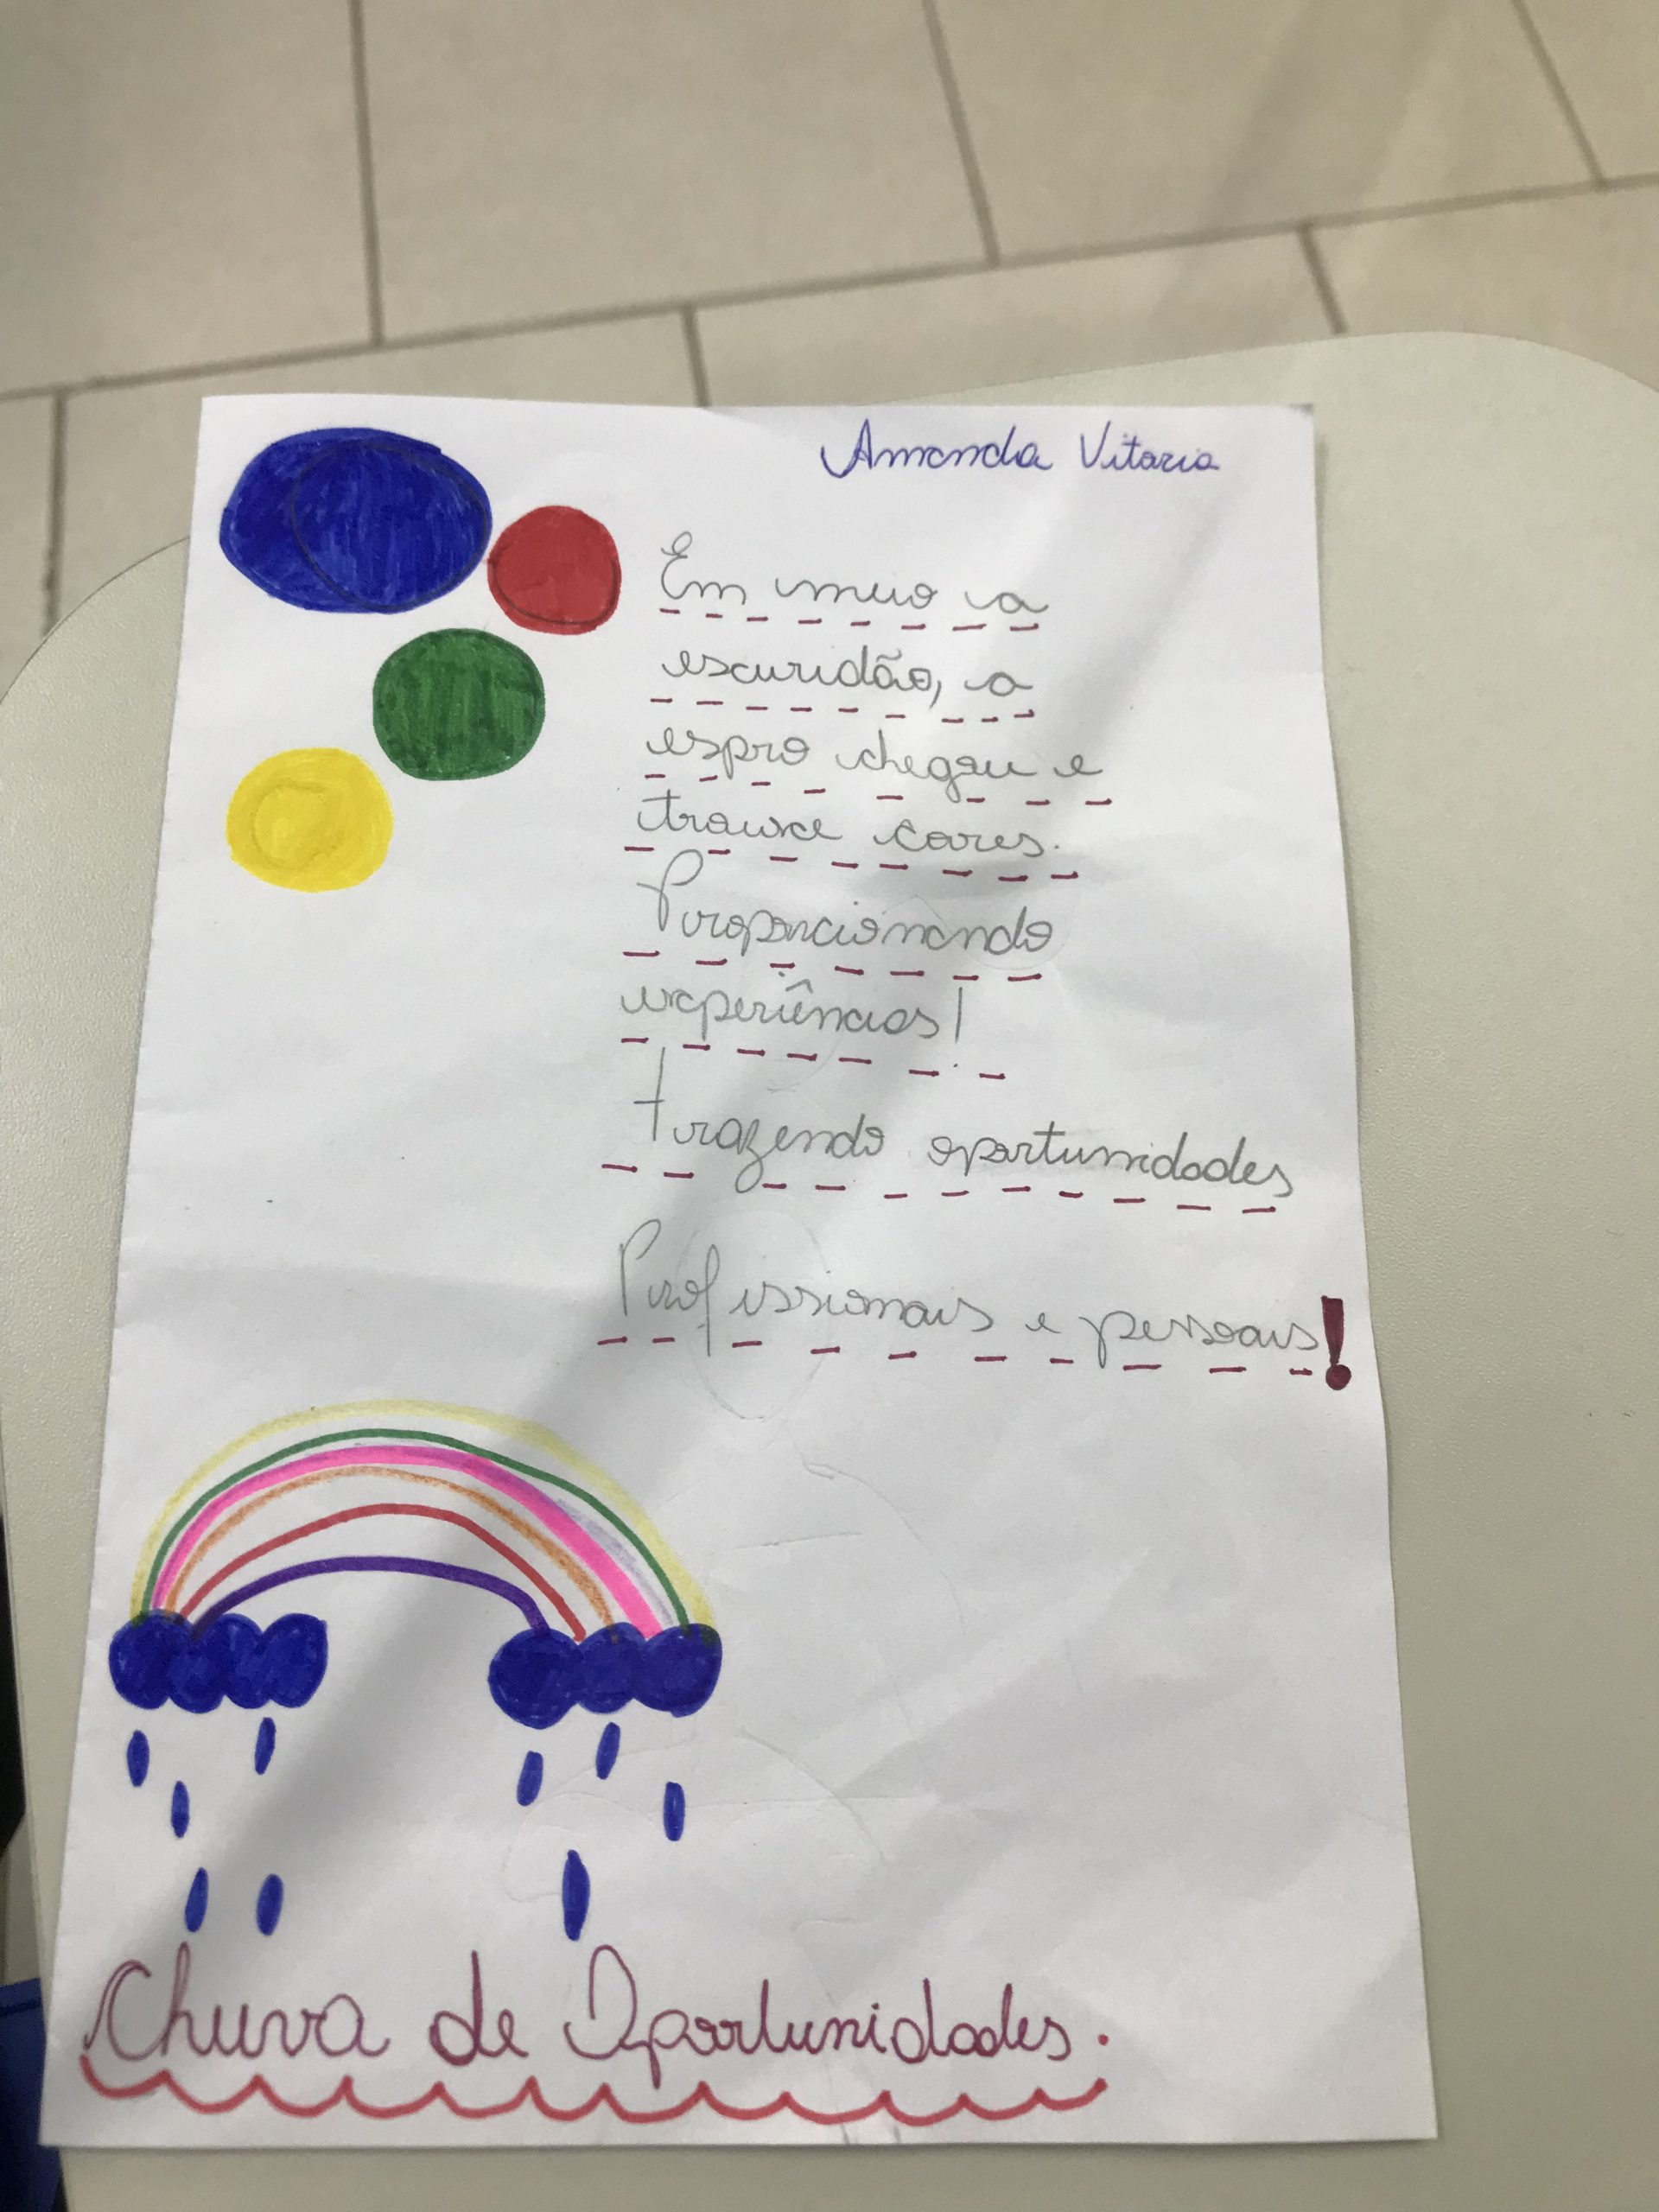 Amanda Vitoria
Em meio a
escuridão, a
espro chegou e
trouxe cores.
Proporcionando
experiências!
trazendo oportunidades
Profissionais e pessoais!
Chuva de Oportunidades.